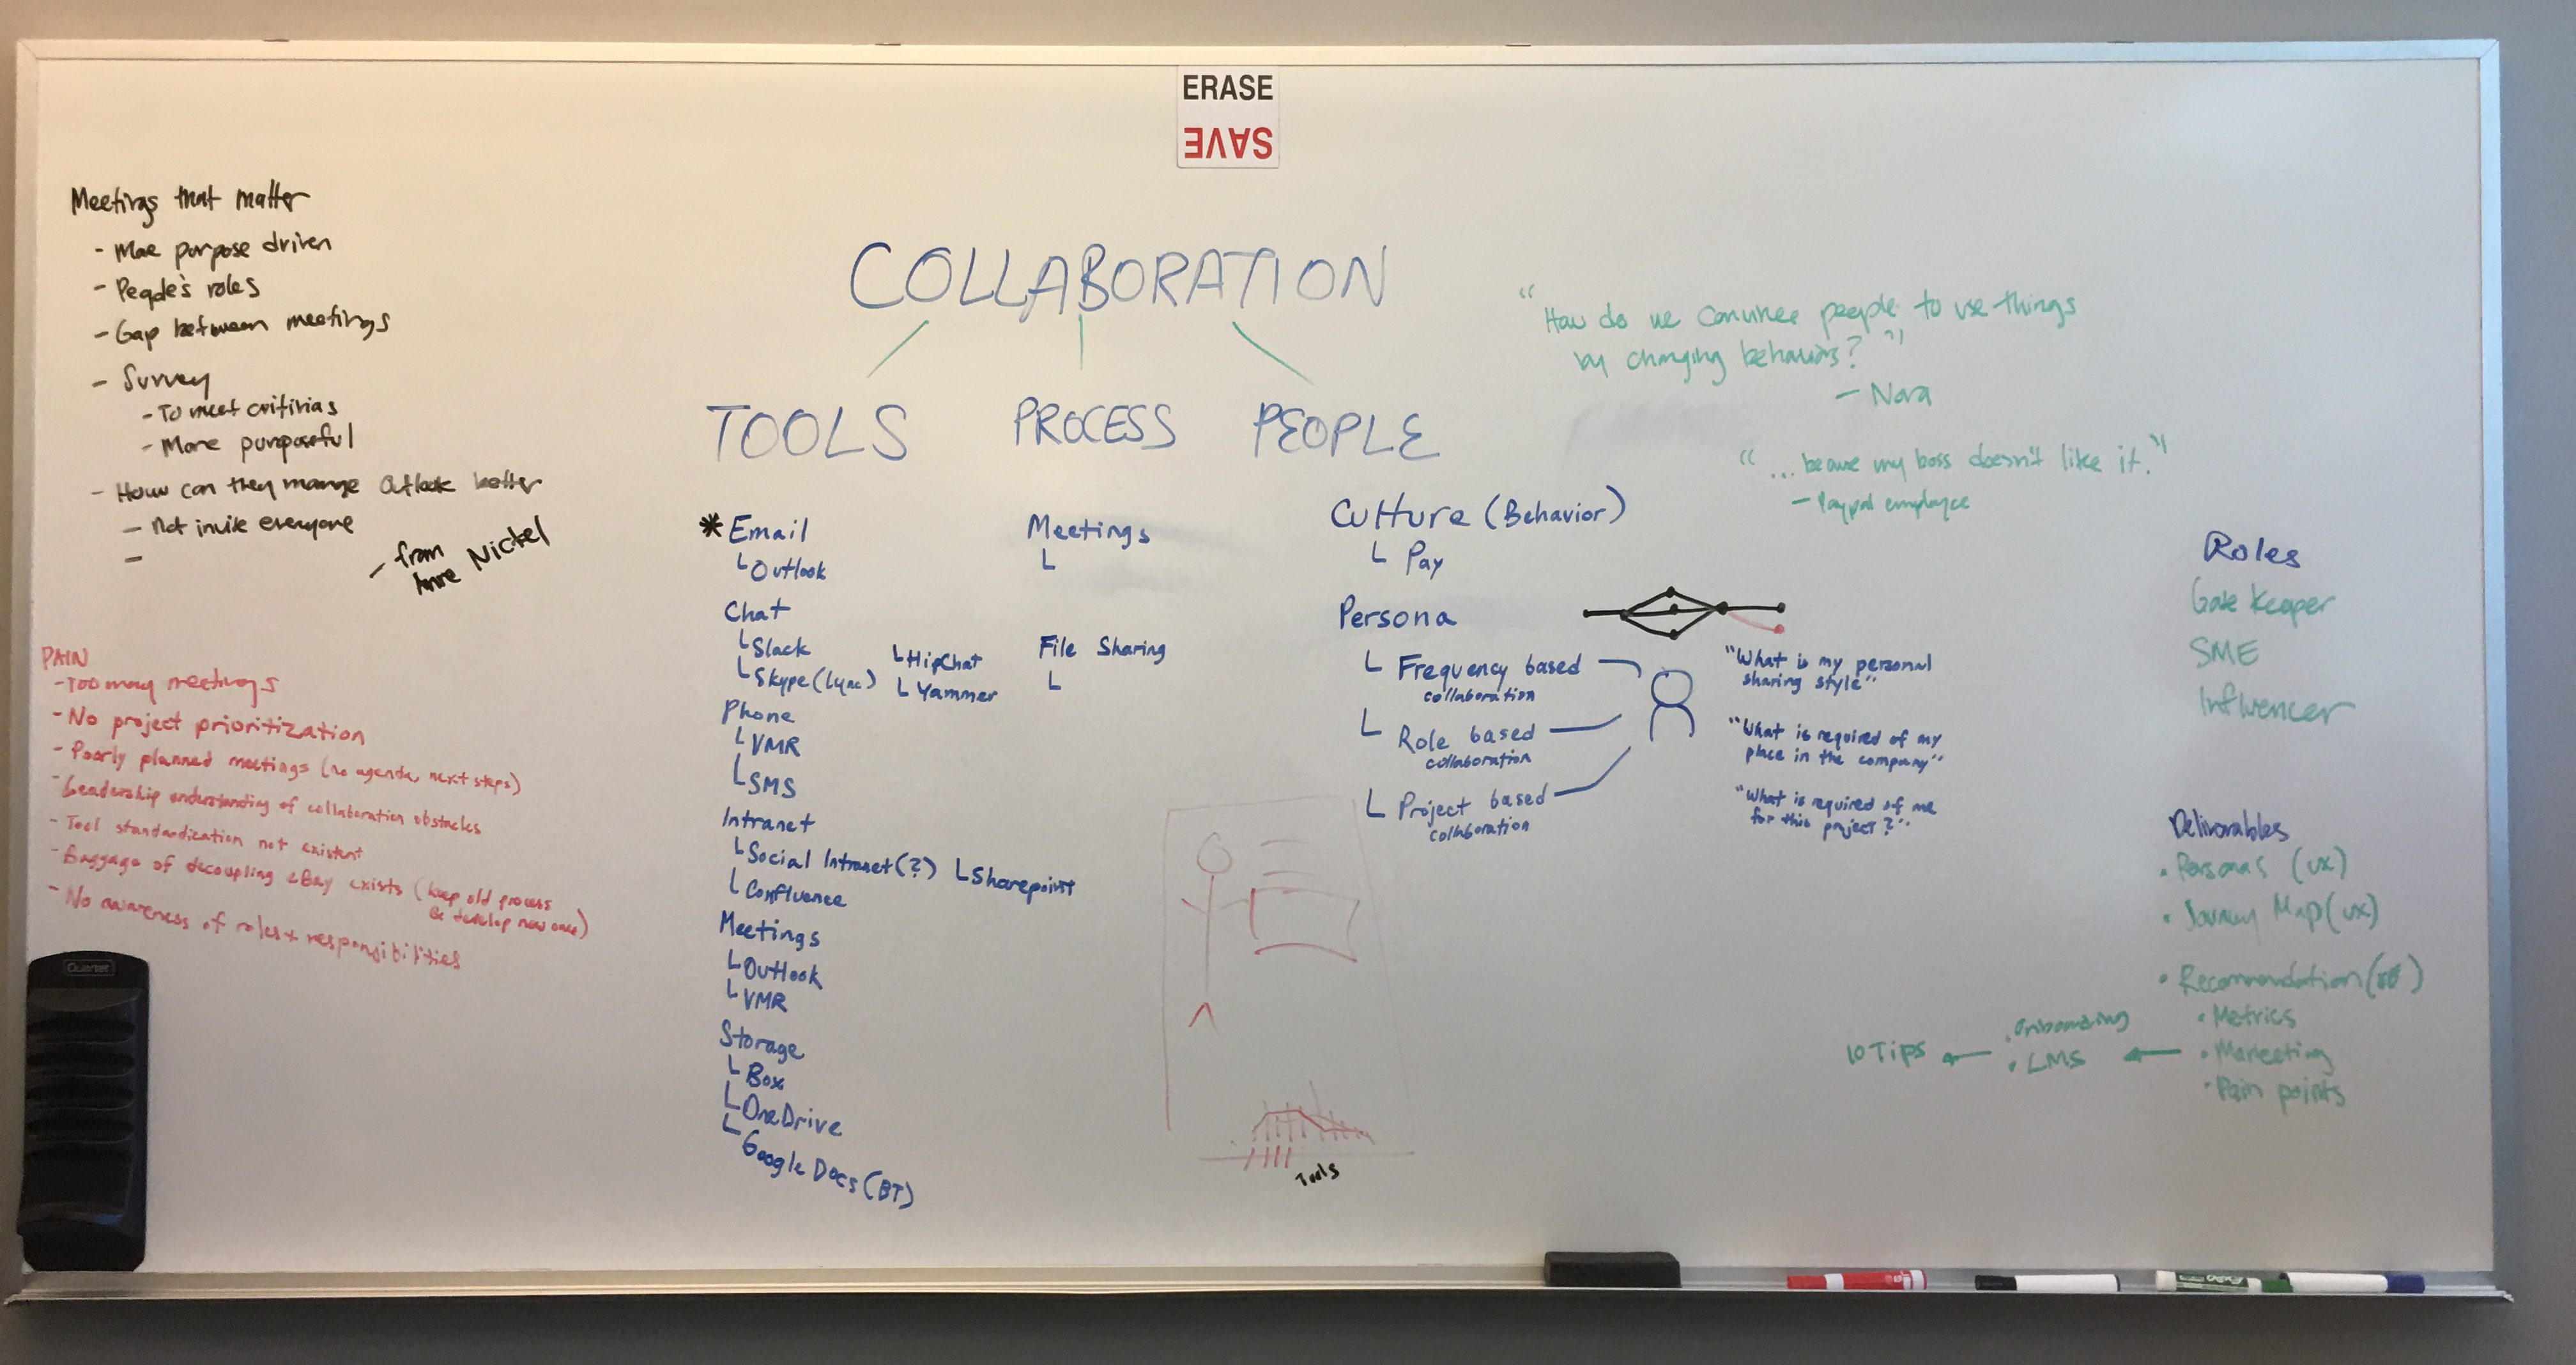 ERASE
SAVE
Meetings that matter
- More purpose driven
- People's roles
- Gap between meetings
- Survey
- To meet critirias
- More purposeful
- How can they manage Outlook better
- Not invite everyone
-
- from
Nickel
PAIN
- Too many meetings
- No project prioritization
- Poorly planned meetings (no agenda, next steps)
- Leadership understanding of collaboration obstacles
- Tool standardization not existent
- Baggage of decoupling eBay exists (keep old process
& develop new one)
- No awareness of roles + responsibilities
COLLABORATION
TOOLS PROCESS PEOPLE
* Email
Outlook
Chat
Slack
Skype (Lync)
HipChat
Yammer
Phone
VMR
SMS
Intranet
Social Intranet (?) Sharepoint
Confluence
Meetings
Outlook
VMR
Storage
Box
OneDrive
Google Docs (BT)
Meetings
File Sharing
Tools
Culture (Behavior)
Pay
Persona
Frequency based
collaboration
Role based
collaboration
Project based
collaboration
"What is my personal
sharing style"
"What is required of my
place in the company"
"What is required of me
for this project?"
"How do we convince people to use things
by changing behaviors?"
- Nora
"... because my boss doesn't like it."
- Paypal employee
Roles
Gate Keeper
SME
Influencer
Deliverables
• Personas (UX)
• Journey Map (UX)
• Recommendation
• Metrics
• Marketing
• Pain points
• Onboarding
• LMS
10 Tips
Quartet